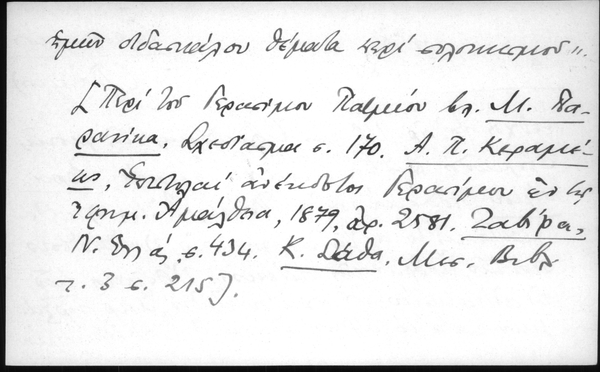 ἡμῶν διδασκάλου θέματα περὶ σολοικισμοῦ".
[Περὶ τοῦ Γερασίμου Πατμίου βλ. Μ. Πα-
ρανίκα, Σχεδίασμα σ. 170. Α. Π. Κεραμέ-
ως, Ἐπιστολαὶ ἀνέκδοτοι Γερασίμου ἐν τῇ
ἐφημ. Ἀμάλθεια, 1879, ἀρ. 2581. Ζαβίρα,
Ν. Ἑλλάς, σ. 434. Κ. Σάθα, Μεσ. Βιβλ.
τ. 3 σ. 215].